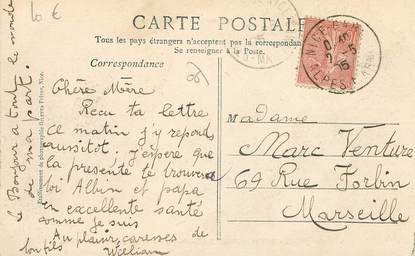 10 €
CARTE POSTALE
Tous les pays étrangers n'acceptent pas la correspondance
Se renseigner à la Poste.
Correspondance
Chère Mère
Recu ta lettre
ce matin j'y reponds
aussitot. J'espère que
la presente te trouvera
toi Albin et papa
en excellente santé
comme je suis
Au plaisir caresses de
ton fils William
Bonjour à tout le monde
de ma part
Madame
Marc Venture
69 Rue Forbin
Marseille
NICE
ALPES MARIM